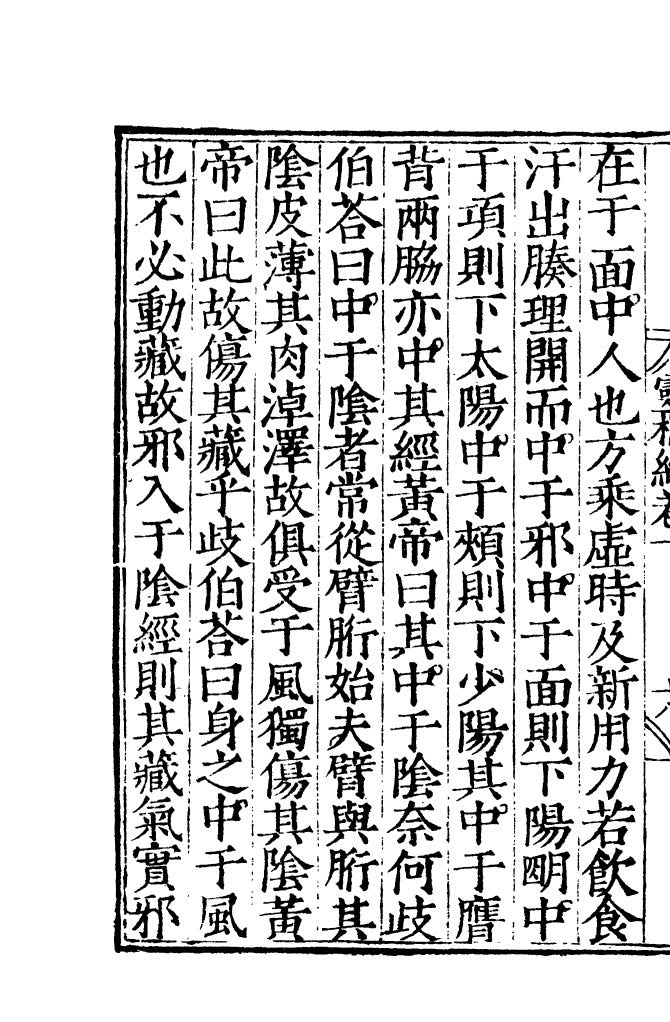 在于面中人也方乘虛時及新用力若飲食
汗出腠理開而中于邪中于面則下陽明中
于項則下太陽中于頰則下少陽其中于膺
背兩脇亦中其經黃帝曰其中于陰奈何歧
伯荅曰中于陰者常從臂胻始夫臂與胻其
陰皮薄其肉淖澤故俱受于風獨傷其陰黃
帝曰此故傷其藏乎歧伯荅曰身之中于風
也不必動藏故邪入于陰經則其藏氣實邪